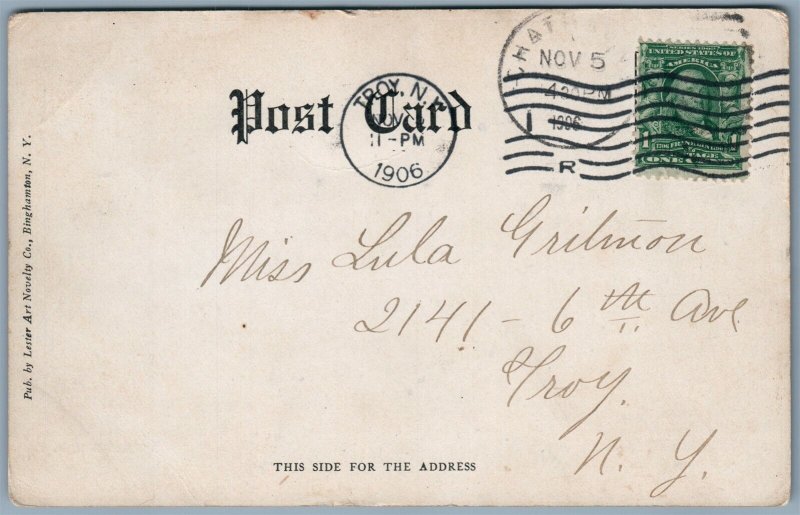 Post Card
TROY, N.Y.
NOV
11-PM
1906
CHATH
NOV 5
4 30 PM
1906
1
R
SERIES 1902
UNITED STATES OF
AMERICA
1 FRANKLIN 1
POSTAGE
ONE
Pub. by Lester Art Novelty Co., Binghamton, N. Y.
Miss Lula
2141 - 6th Ave
Troy.
N. Y.
THIS SIDE FOR THE ADDRESS